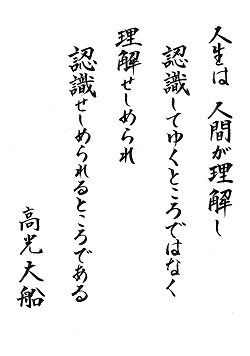 人生は 人間が理解し
認識してゆくところではなく
理解せしめられ
認識せしめられるところである
高光大船